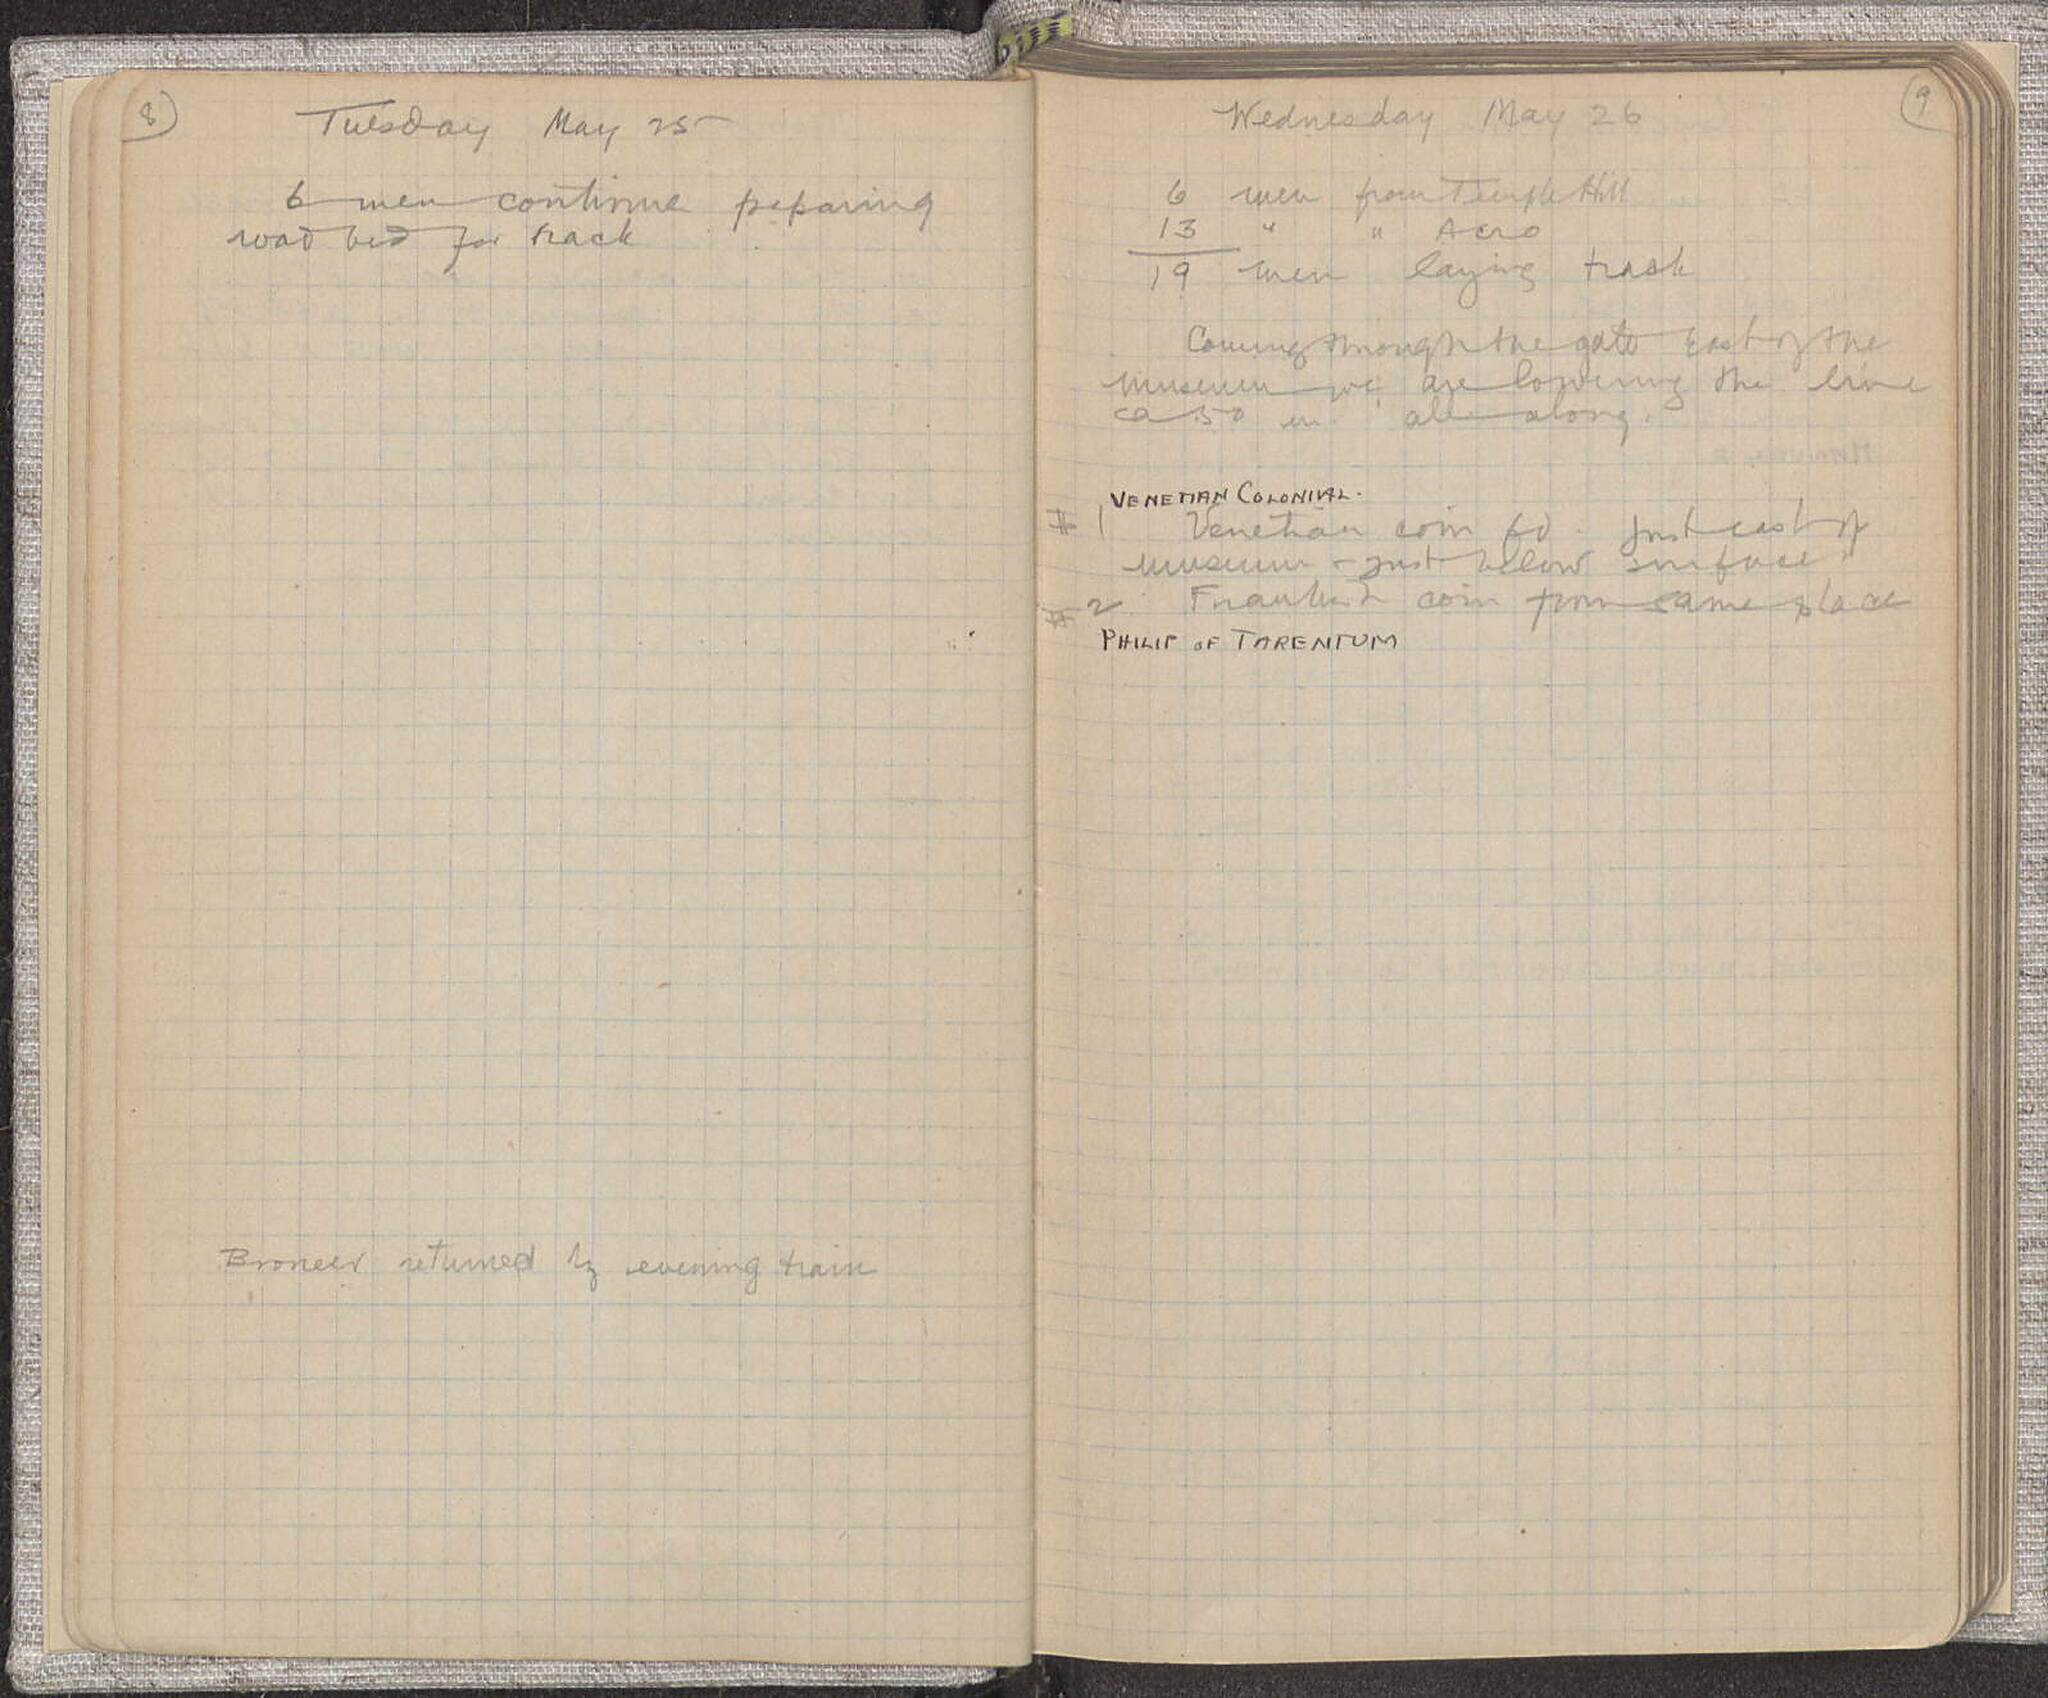 8
Tuesday May 25
6 men continue peparing
road bed for track
Broneer returned by evening train
9
Wednesday May 26
6 men from Temple Hill
13 " " Acro
19 men laying track
Coming through the gate East of the
museum we are lowering the line
ca 50 m. all along.
VENETIAN COLONIAL.
# 1 Venetian coin fd. just east of
museum - just below surface
# 2 Frankish coin from same place
PHILIP OF TARENTUM